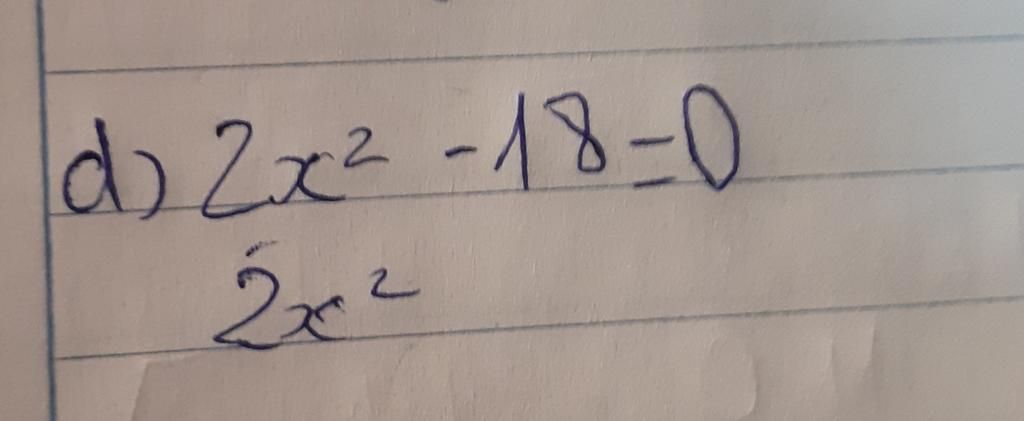 d) 2x² - 18 = 0
2x²